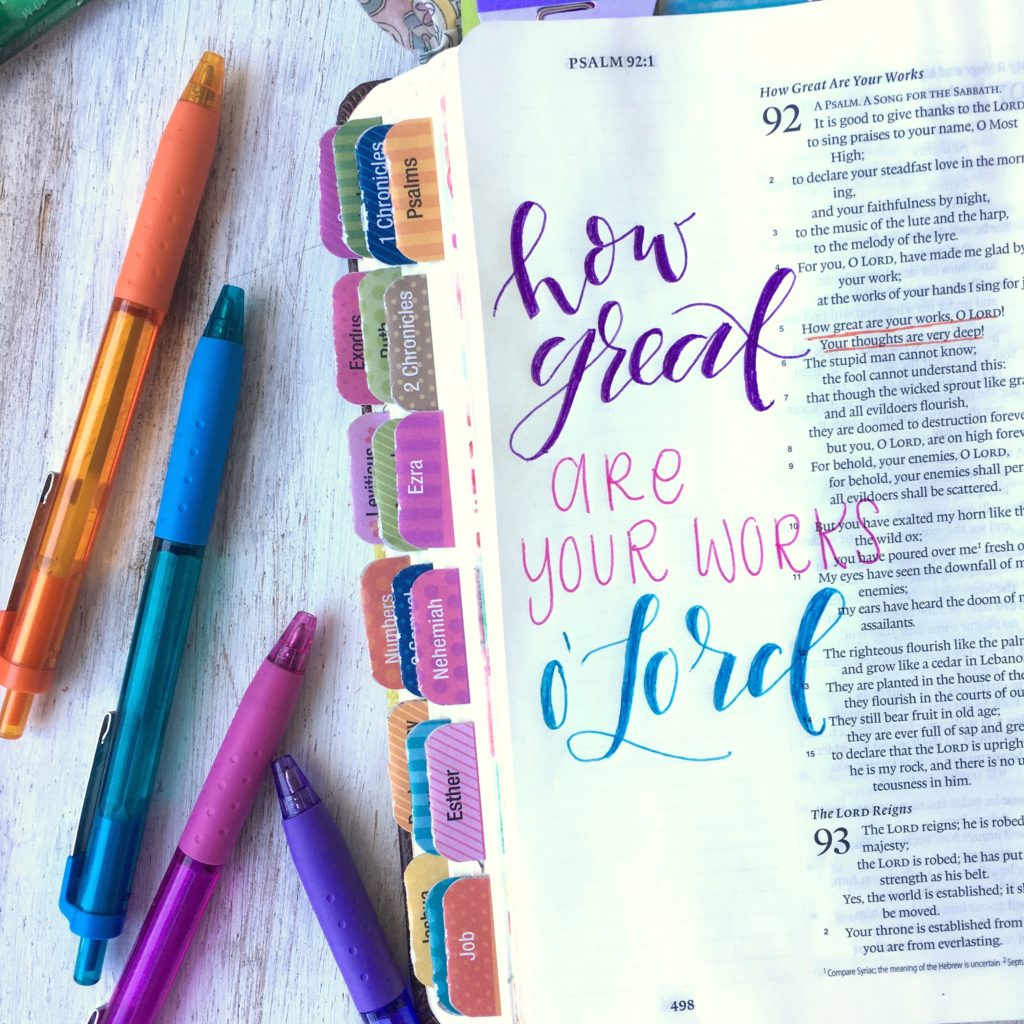 PSALM 92:1
how
great
are
YOUR WORKS
o' Lord
How Great Are Your Works
92 A PSALM. A SONG FOR THE SABBATH.
It is good to give thanks to the LORD
to sing praises to your name, O Most
High;
2 to declare your steadfast love in the morn
ing,
and your faithfulness by night,
3 to the music of the lute and the harp,
to the melody of the lyre.
4 For you, O LORD, have made me glad by
your work;
at the works of your hands I sing for
5 How great are your works, O LORD!
Your thoughts are very deep!
6 The stupid man cannot know;
the fool cannot understand this:
7 that though the wicked sprout like
and all evildoers flourish,
they are doomed to destruction
8 but you, O LORD, are on high
9 For behold, your enemies, O LORD,
for behold, your enemies shall
all evildoers shall be scattered.
10 But you have exalted my horn like
the wild ox;
you have poured over me¹ fresh
11 My eyes have seen the downfall of
enemies;
my ears have heard the doom of
assailants.
12 The righteous flourish like the
and grow like a cedar in
13 They are planted in the house of the
they flourish in the courts of
14 They still bear fruit in old age;
they are ever full of sap and
15 to declare that the LORD is
he is my rock, and there is no
teousness in him.
The LORD Reigns
93 The LORD reigns; he is robed
majesty;
the LORD is robed; he has put
strength as his belt.
Yes, the world is established; it
be moved.
2 Your throne is established from
you are from everlasting.
¹ Compare Syriac; the meaning of the Hebrew is uncertain ²
498
1 Chronicles
Psalms
Exodus
Ruth
2 Chronicles
Leviticus
Ezra
Numbers
2 Samuel
Nehemiah
Esther
Joshua
Job